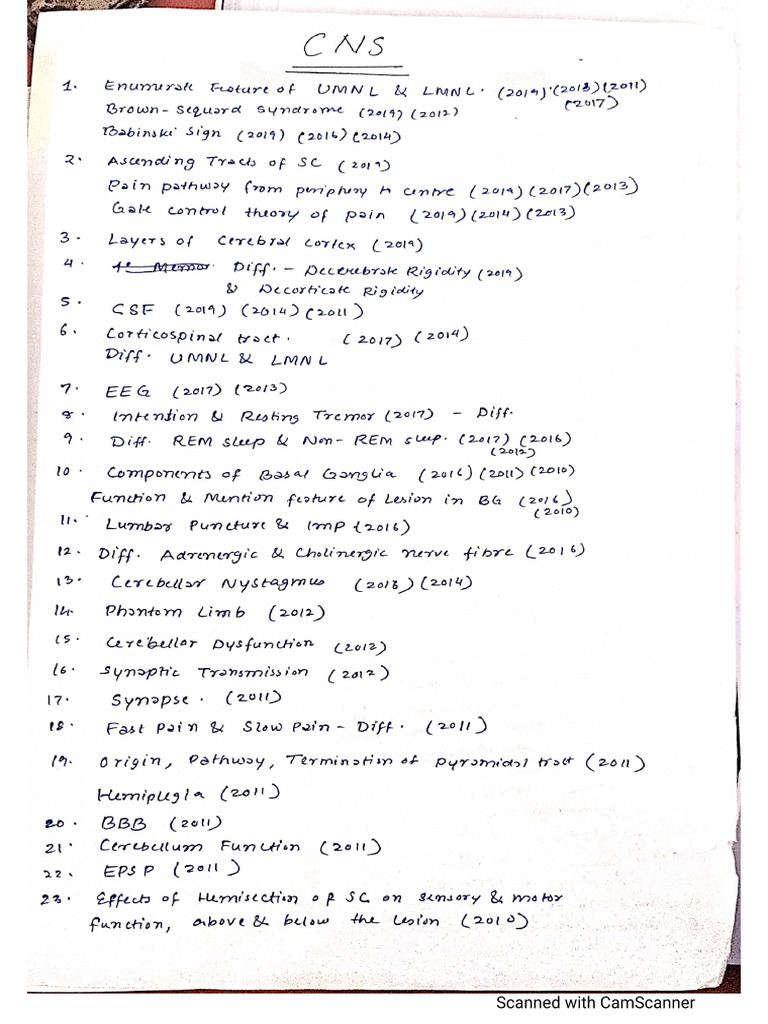 CNS
1. Enumerate Feature of UMNL & LMNL. (2019).(2018)(2011)
(2017)
Brown-Sequard Syndrome (2019) (2012)
Babinski Sign (2019) (2016) (2014)
2. Ascending Tracts of SC (2019)
Pain pathway from periphery to centre (2019) (2017)(2013)
Gate control theory of pain (2019) (2014) (2013)
3. Layers of Cerebral Cortex (2019)
4. Diff. - Decerebrate Rigidity (2019)
& Decorticate Rigidity
5. CSF (2019) (2014) (2011)
6. Corticospinal tract. (2017) (2014)
Diff. UMNL & LMNL
7. EEG (2017) (2013)
8. Intention & Resting Tremor (2017) - Diff.
9. Diff. REM sleep & Non-REM sleep. (2017) (2016)
(2012)
10. Components of Basal Ganglia (2016) (2011) (2010)
Function & Mention feature of Lesion in BG (2016)
(2010)
11. Lumbar Puncture & IMP (2016)
12. Diff. Adrenergic & Cholinergic nerve fibre (2016)
13. Cerebellar Nystagmus (2018) (2014)
14. Phantom Limb (2012)
15. Cerebellar Dysfunction (2012)
16. Synaptic Transmission (2012)
17. Synapse. (2011)
18. Fast Pain & Slow Pain - Diff. (2011)
19. Origin, Pathway, Termination of pyramidal tract (2011)
Hemiplegia (2011)
20. BBB (2011)
21. Cerebellum Function (2011)
22. EPSP (2011)
23. Effects of Hemisection of SC on sensory & motor
function, above & below the Lesion (2010)
Scanned with CamScanner